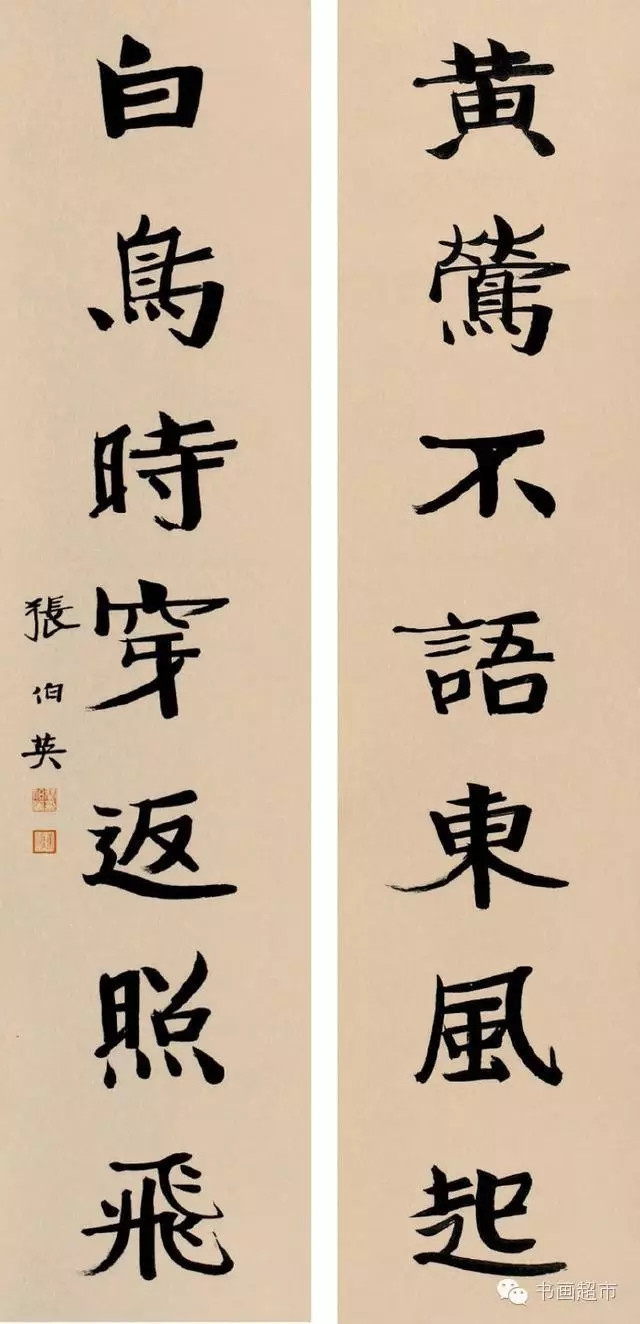 黄鶯不語東風起
白鳥時穿返照飛
張伯英
书画超市